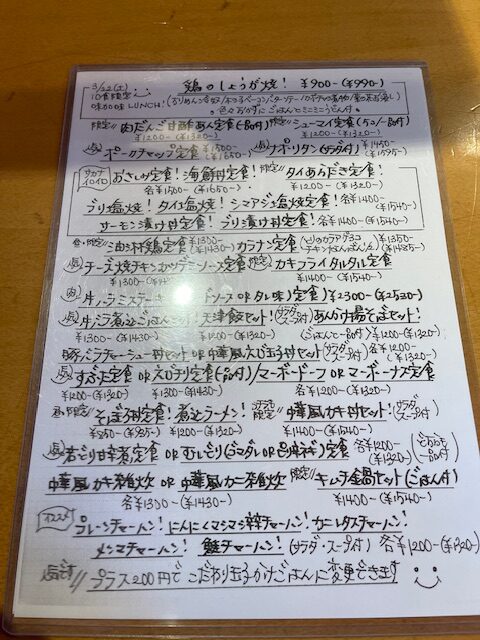 3/22(土) 鶏のしょうが焼! ¥900-(¥990-)
10食限定
味加味 LUNCH!
色々おかずに ごはんとミニミニうどん付
限定 肉だんご甘酢あん定食(一品付) 限定 シューマイ定食(5コ/一品付)
¥1200-(¥1320-) ¥1200-(¥1320-)
人気 ポークチャップ定食 ¥1500-(¥1650-) 人気 ナポリタン(サラダ付) ¥1450-(¥1595-)
サカナイロイロ おさしみ定食! 海鮮丼定食! 限定 タイあらだき定食!
各¥1500-(¥1650-) ¥1200-(¥1320-)
ブリ塩焼! タイ塩焼! シマアジ塩焼! 定食 各¥1400-(¥1540-)
サーモン漬け丼定食! ブリ漬け丼定食! 各¥1400-(¥1540-)
油淋鶏定食 ¥1300-(¥1430-) カラナン定食 ¥1350-(¥1485-)
人気 チーズ焼チキンカツデミソース定食 限定 カキフライタルタル定食
¥1300-(¥1430-) ¥1400-(¥1540-)
牛ハラミステーキ ソース OR タレ味)定食 ¥2300-(¥2530-)
人気 牛バラ煮込ごはんセット! 天津飯セット!(サラダ・スープ付) あんかけ揚そばセット!
¥1300-(¥1430-) ¥1200-(¥1320-) (ごはんと一品付) ¥1200-(¥1320-)
豚バラチャーシュー丼セット OR 中華風えび玉子丼セット(サラダ・スープ付) 各¥1200-(¥1320-)
人気 すぶた定食 OR えびチリ定食(一品付) / マーボードーフ OR マーボーナス定食
¥1200-(¥1320-) ¥1300-(¥1430-) 各¥1200-(¥1320-)
そぼろ丼定食! 煮込ラーメン! 限定 中華風カキ丼セット!(サラダ・スープ付)
¥850-(¥935-) ¥1200-(¥1320-) ¥1400-(¥1540-)
人気 若どり甘辛煮定食 OR むしどり(ゴマダレOR 定食 各¥1200-(¥1320-) (どちらも一品付)
中華風カキ雑炊 OR 中華風カニ雑炊 限定 キムチ鍋セット(ごはん付)
各¥1300-(¥1430-) ¥1400-(¥1540-)
オススメ プレーンチャーハン! にんにくマシマシ豚チャーハン! カニレタスチャーハン!
メンマチャーハン! 鮭チャーハン!(サラダ・スープ付) 各¥1200-(¥1320-)
人気です プラス200円で こだわり玉子かけごはんに変更できます